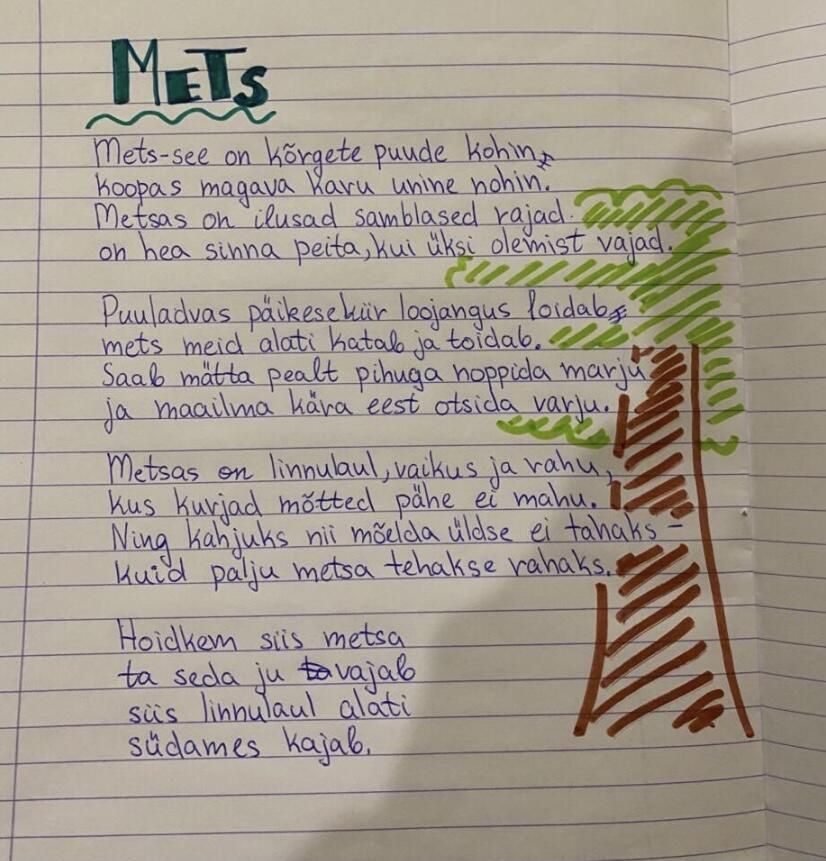 METS
Mets-see on kõrgete puude kohin,
koopas magava karu unine nohin.
Metsas on ilusad samblased rajad.
on hea sinna peita, kui üksi olemist vajad.
Puuladvas päikesekiir loojangus loidab,
mets meid alati katab ja toidab.
Saab mätta pealt pihuga noppida marju
ja maailma kära eest otsida varju.
Metsas on linnulaul, vaikus ja rahu,
kus kurjad mõtted pähe ei mahu.
Ning kahjuks nii mõelda üldse ei tahaks –
kuid palju metsa tehakse rahaks.
Hoidkem siis metsa
ta seda ju vajab
siis linnulaul alati
südames kajab.